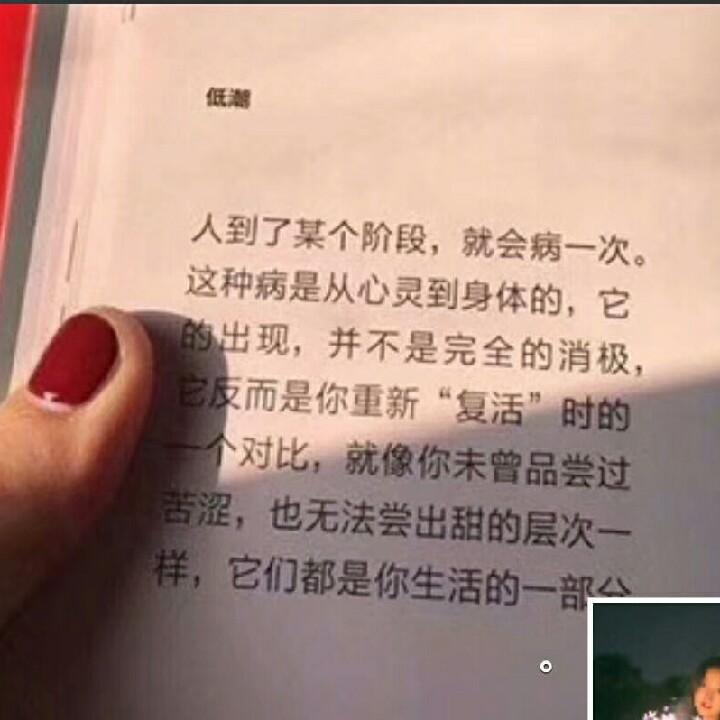 低潮
人到了某个阶段，就会病一次。
这种病是从心灵到身体的，它
的出现，并不是完全的消极，
它反而是你重新“复活”时的
一个对比，就像你未曾品尝过
苦涩，也无法尝出甜的层次一
样，它们都是你生活的一部分